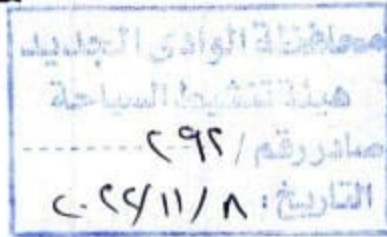 محافظة الوادى الجديد
هيئة تنشيط السياحة
صادر رقم / ٢٩٢
التاريخ : ٨ / ١١ / ٢٠٢٢